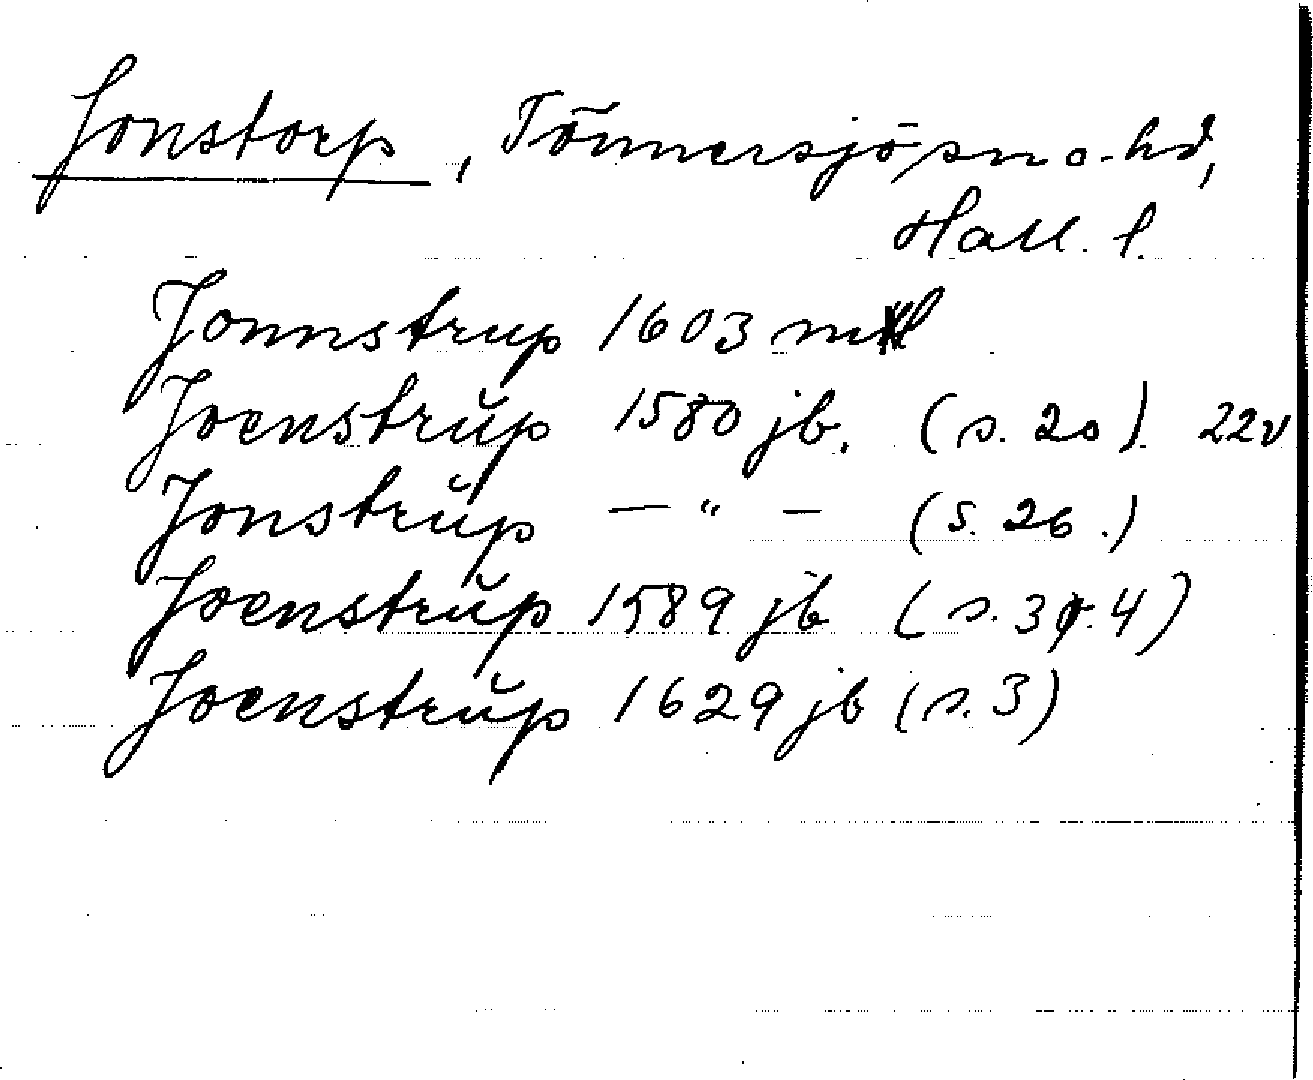 Jonstorp, Tönnersjö sn o. hd,
Hall. l.
Jonnstrup 1603 ml
Joenstrŭp 1580 jb. (s. 20) 22v
Jonstrŭp — " — (s. 26.)
Joenstrŭp 1589 jb (s. 3 4)
Joenstrŭp 1629 jb (s. 3)